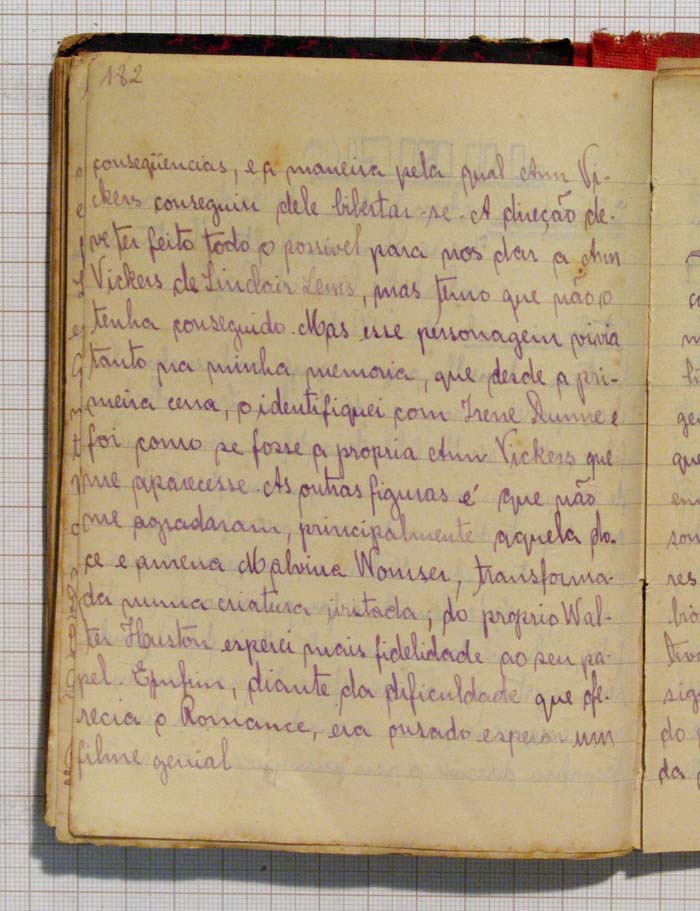 182
conseqüencias, e a maneira pela qual Ann Vi-
ckers conseguiu dele libertar-se. A direção de-
ve ter feito todo o possivel para nos dar a Ann
Vickers de Sinclair Lewis, mas temo que não o
tenha conseguido. Mas esse personagem vivia
tanto na minha memoria, que desde a pri-
meira cena, o identifiquei com Irene Dunne e
foi como se fosse a propria Ann Vickers que
me aparecesse. As outras figuras é que não
me agradaram, principalmente aquela do-
ce e amena Malvina Wormser, transforma-
da numa criatura irritada; do proprio Wal-
ter Houston esperei mais fidelidade ao seu pa-
pel. Enfim, diante da dificuldade que ofe-
recia o Romance, era ousado esperar um
filme genial